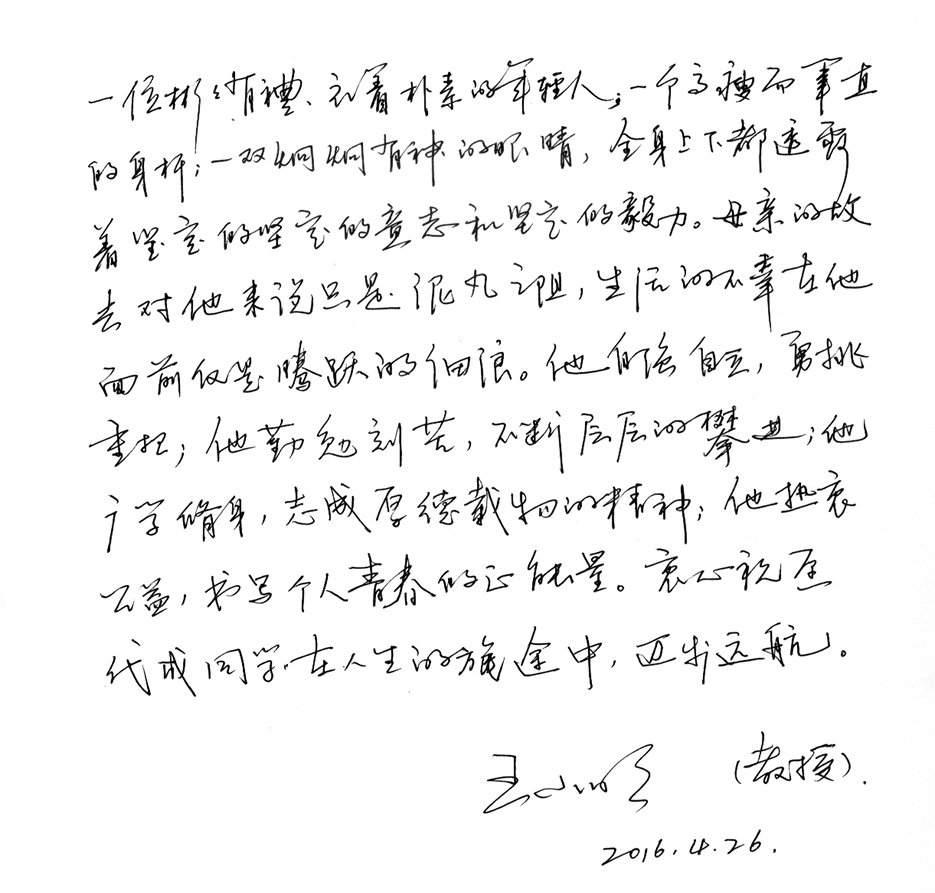 一位彬彬有禮、衣着朴素的年輕人；一个高瘦而笔直
的身杆；一双炯炯有神的眼睛，全身上下都透露
着坚定的坚定的意志和坚定的毅力。母亲的故
去对他来说只是泥丸之阻，生活的不幸在他
面前仅是腾跃的细浪。他自强自立，勇挑
重担；他勤勉刻苦，不断层层的攀登；他
广学脩身，志成厚德载物的精神；他热衷
公益，书写个人青春的正能量。衷心祝愿
代成同学在人生的旅途中，迈步远航。
（教授）.
2016.4.26.